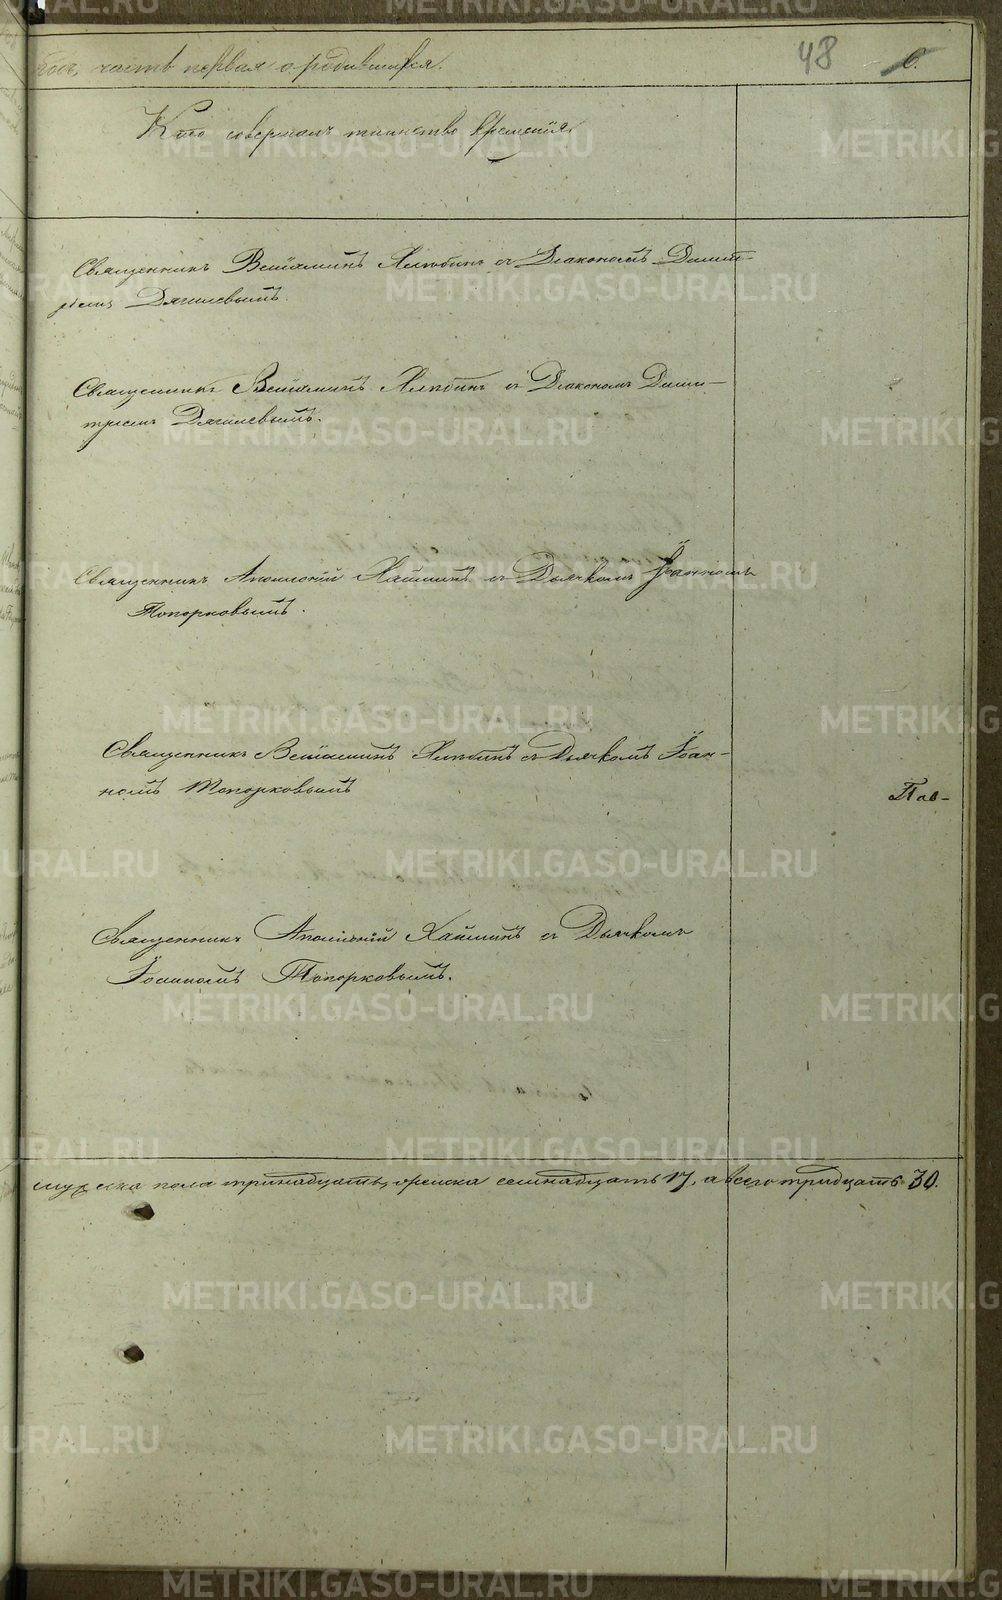 часть первая о родившихся. 48 6.
Кто совершалъ таинство крещенія.
Священникъ Веніаминъ съ Діакономъ Димит-
ріемъ Дягилевымъ.
Священникъ Веніаминъ съ Діакономъ Дими-
тріемъ Дягилевымъ.
Священникъ Аполлоній Хаминъ съ Дьячкомъ Іоанномъ
Топорковымъ.
Священникъ Веніаминъ съ Дьячкомъ Іоан-
номъ Топорковымъ
Пав-
Священникъ Аполлоній Хаминъ съ Дьячкомъ
Іоанномъ Топорковымъ.
мужеска пола тринадцать, женска семнадцать 17, а всего тридцать 30.
METRIKI.GASO-URAL.RU